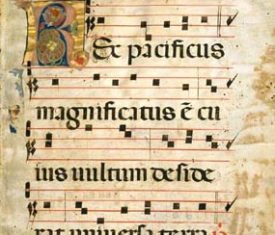 Rex pacificus
magnificatus ē cu
ius uultum deside
rat universa terra